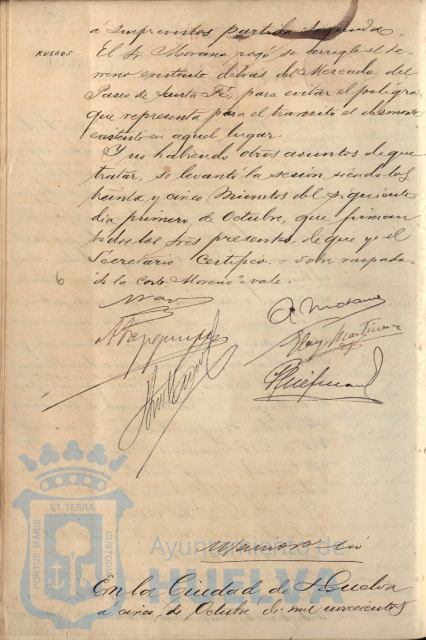 á Imprevistos partida segunda.
RUEGOS
El Sr. Moreno rogó se arregle el te-
rreno existente detrás del Mercado, del
Paseo de Santa Fé, para evitar el peligro
que representa para el tránsito el desmonte
existente en aquel lugar.
Y no habiendo otros asuntos de que
tratar, se levantó la sesión siendo las
treinta y cinco minutos del siguiente
dia primero de Octubre, que firman
todos los Sres presentes, de que yo el
Secretario certifico. = raspado
"de la Corte Moreno" = vale.
6
A. Moreno
Martinez
ET TERRA
PORTUS MARIS
CUSTODIA
Ayuntamiento de
HUELVA
En la Ciudad de Huelva
a cinco, de Octubre de mil novecientos